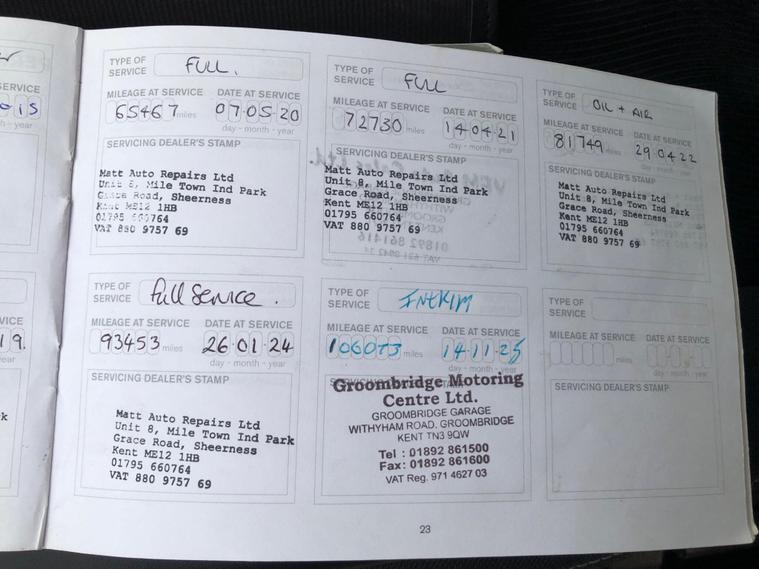 TYPE OF SERVICE FULL.
MILEAGE AT SERVICE DATE AT SERVICE
65467 miles 07 05 20
day - month - year
SERVICING DEALER'S STAMP
Matt Auto Repairs Ltd
Unit 8, Mile Town Ind Park
Grace Road, Sheerness
Kent ME12 1HB
01795 660764
VAT 880 9757 69
TYPE OF SERVICE FULL
MILEAGE AT SERVICE DATE AT SERVICE
72730 miles 14 04 21
day - month - year
SERVICING DEALER'S STAMP
Matt Auto Repairs Ltd
Unit 8, Mile Town Ind Park
Grace Road, Sheerness
Kent ME12 1HB
01795 660764
VAT 880 9757 69
TYPE OF SERVICE OIL + AIR
MILEAGE AT SERVICE DATE AT SERVICE
81749 miles 29 04 22
day - month - year
SERVICING DEALER'S STAMP
Matt Auto Repairs Ltd
Unit 8, Mile Town Ind Park
Grace Road, Sheerness
Kent ME12 1HB
01795 660764
VAT 880 9757 69
TYPE OF SERVICE Full Service.
MILEAGE AT SERVICE DATE AT SERVICE
93453 miles 26 01 24
day - month - year
SERVICING DEALER'S STAMP
Matt Auto Repairs Ltd
Unit 8, Mile Town Ind Park
Grace Road, Sheerness
Kent ME12 1HB
01795 660764
VAT 880 9757 69
TYPE OF SERVICE INTERIM
MILEAGE AT SERVICE DATE AT SERVICE
106073 miles 14 11 25
day - month - year
Groombridge Motoring
Centre Ltd.
GROOMBRIDGE GARAGE
WITHYHAM ROAD, GROOMBRIDGE
KENT TN3 9QW
Tel : 01892 861500
Fax: 01892 861600
VAT Reg. 971 4627 03
TYPE OF SERVICE
MILEAGE AT SERVICE DATE AT SERVICE
miles
day - month - year
SERVICING DEALER'S STAMP
23